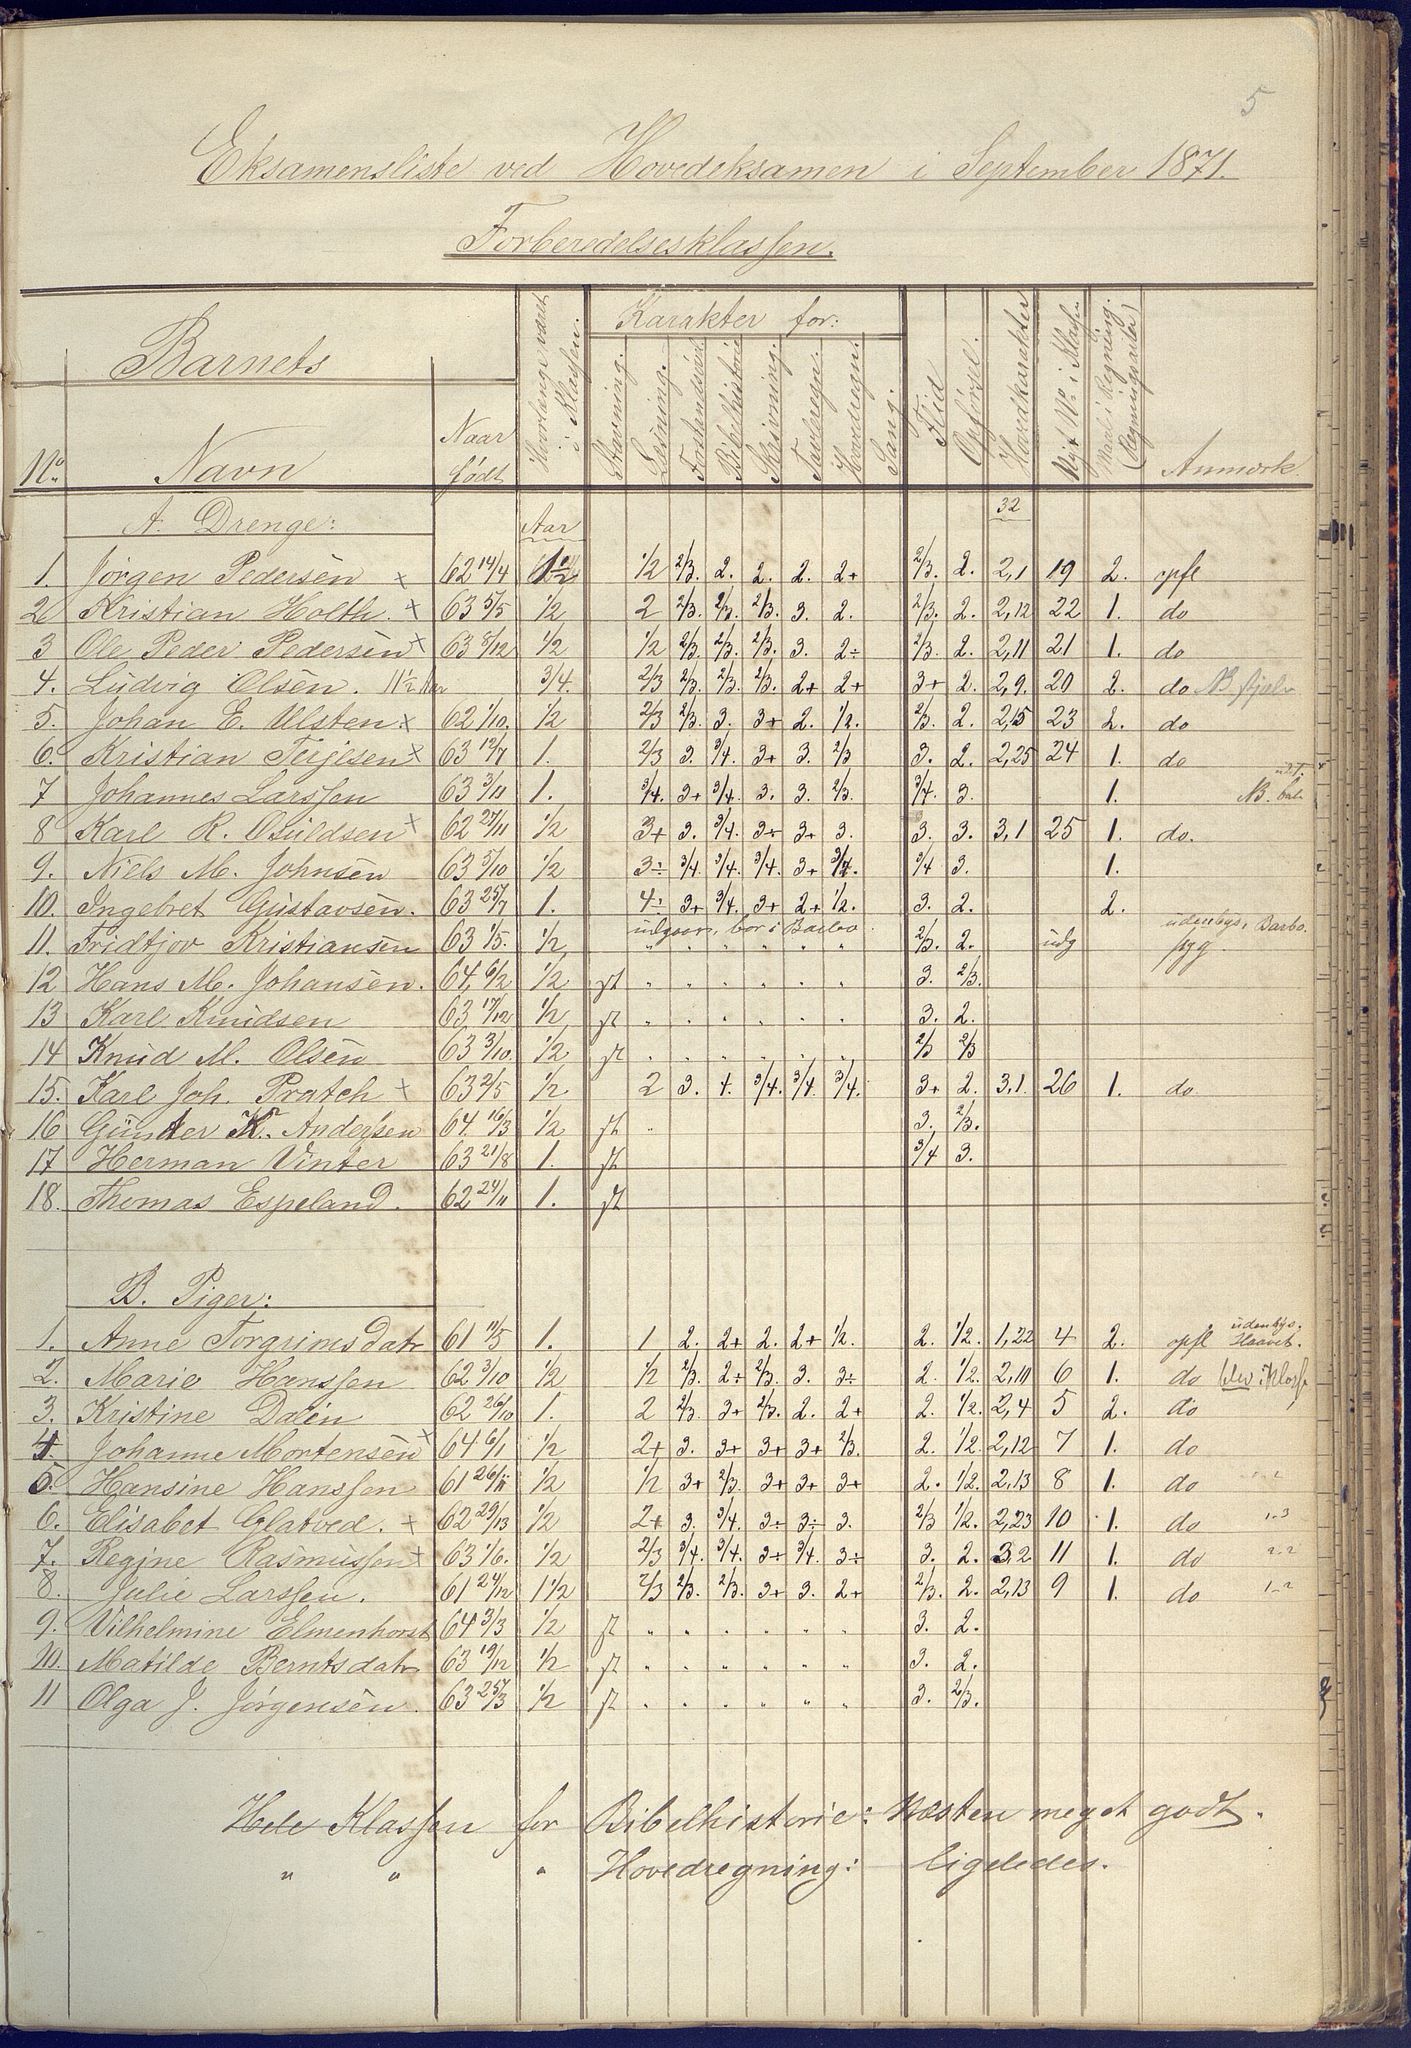 5
Eksamensliste ved Hovedeksamen i September 1871.
Forberedelsesklassen.
Barnets
No. Navn Naar født Hvorlænge været i Klassen. Karakter for: Stavning. Læsning. Bibelhistorie Skrivning. Tavleregn. Hovedregn. Sang. Flid Opførsel. Hovedkarakter Nyt No. i Klassen Maal i Regning. Anmærk.
A. Drenge: Aar 32
1. Jørgen Pedersen x 62 14/4 1 1/2 1/2 2/3. 2. 2. 2. 2+ 2/3. 2. 2,1 19 2. opfl
2. Kristian Holth. x 63 5/5 1/2 2 2/3. 2/3. 2/3. 3. 2. 2/3. 2. 2,12 22 1. do
3 Ole Peder Pedersen x 63 8/12 1/2 1/2 2/3. 2/3. 2/3. 3. 2÷ 2/3. 2. 2,11 21 1. do
4. Ludvig Olsen. 11 1/2 Aar 3/4. 2/3 2/3. 2/3. 2/3. 2+ 2+ 3+ 2. 2,9. 20 2. do NB
5. Johan E. Ulsten x 62 1/10. 1/2 2/3 2/3. 3. 3+ 2. 1/2. 2/3. 2. 2,15 23 2. do
6. Kristian Terjesen x 63 12/7 1. 2/3 3. 3/4. 3+ 3. 2/3 3. 2. 2,25 24 1. do
7 Johannes Larssen 63 3/11 1. 3/4. 3+ 3/4. 3. 3. 2/3. 3/4. 3. 1. NB.
8 Karl R. Osuldsen x 62 27/11 1/2 3+ 3. 3/4. 3÷ 3+ 3. 3. 3. 3,1 25 1. do.
9. Niels M. Johnsen 63 5/10 1/2 3÷ 3/4. 3/4. 3/4. 3+ 3/4. 3/4 3. 1.
10. Ingebret Gustavsen. 63 25/7 1. 4÷ 3+ 3/4. 3+ 2+ 1/2. 3. 2. 2.
11. Fridtjov Kristiansen 63 1/5. 1/2 udgaar, bor i Barbo. " " " " " " 2/3. 2. udg udenbys, Barbo.
12 Hans M. Johansen. 64 6/2 1/2 st " " " " " " 3. 2/3.
13 Karl Knudsen 63 17/12 1/2 st " " " " " " 3. 2.
14 Knud M. Olsen 63 3/10. 1/2 st " " " " " " 2/3 2/3
15. Karl Joh. Pratch x 63 2/5 1/2. 2 3. 4. 3/4. 3/4. 3/4. 3+ 2. 3,1. 26 1. do.
16 Gunder K. Andersen 64. 16/3 1/2 st " 3. 2/3.
17 Herman Vinter 63 21/8 1. st 3/4 3.
18. Thomas Espeland. 62 24/11 1. st
B. Piger:
1. Anne Torgrimsdatr 61 11/5 1. 1 2. 2+ 2. 2+ 1/2. 2. 1/2. 1,22 4 2. opfl udenbys.
2. Marie Hanssen 62 3/10 1/2 1/2 2/3. 2÷ 2/3. 3. 3÷ 2. 1/2. 2,10 6 1. do blev i Klasse
3. Kristine Dalen 62 26/10 1. 2 2/3. 3+ 2/3. 2. 2+ 2. 1/2. 2,4 5 2. do
4. Johanne Mortensen x 64 6/1 1/2 2+ 3. 3+ 3+ 3+ 2/3. 2. 1/2 2,12 7 1. do
5. Hansine Hanssen 61 26/11 1/2 1/2 3+ 2/3. 3+ 3+ 3+ 2. 1/2. 2,13 8 1. do
6. Elisabet Glatved. x 62 1/2 2+ 3. 3/4. 3÷ 3÷ 3. 2/3 1/2. 2,23 10 1. do
7. Regine Rasmussen x 63 1/6. 1/2 2/3 3/4. 3/4. 3÷ 3/4. 3÷ 3. 2. 3,2 11 1. do
8. Julie Larssen. 61 24/12 1 1/2 2/3 2/3. 2/3. 3+ 3. 2+ 2/3. 2. 2,13 9 1. do
9. Vilhelmine Elmenhorst 64 3/3 1/2 st " " " " " " 3. 2.
10. Matilde Berntsdatr 63 19/12 1/2 st " " " " " " 3. 2.
11 Olga J. Jørgensen. 63 25/3 1/2 st " " " " " " 3. 2/3.
Hele Klassen for Bibelhistorie: Næsten meget godt.
" " " Hovedregning: ligeledes.